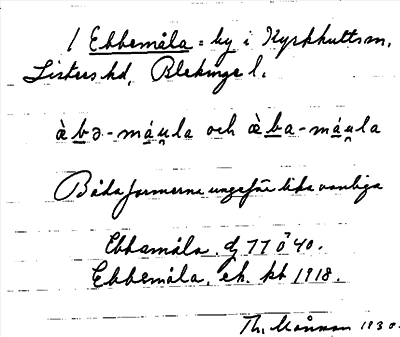 1 Ebbemåla = by i Kyrkhultsm,
Listers hd, Blekinge l.
æ̀bə-máu̯la och æ̀ba-máu̯la
Båda formerna ungefär lika vanliga
Ebbamåla, dj 77 ö 40.
Ebbemåla, ek. kt 1918.
Th. Månsson 1930.